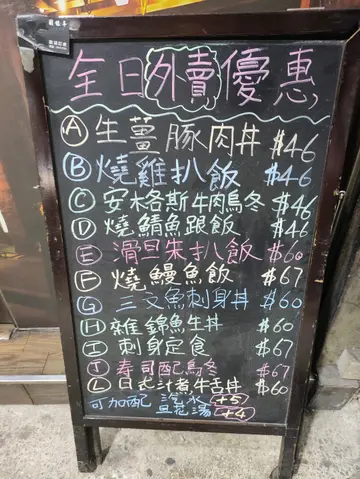 全日外賣優惠
A 生薑豚肉丼 $46
B 燒雞扒飯 $46
C 安格斯牛肉烏冬 $46
D 燒鯖魚跟飯 $46
E 滑旦朱扒飯 $60
F 燒鰻魚飯 $67
G 三文魚刺身丼 $60
H 雜錦魚生丼 $60
I 刺身定食 $67
J 寿司配烏冬 $67
L 日式汁煮牛舌丼 $60
可加配 汽水 +5
旦花湯 +4